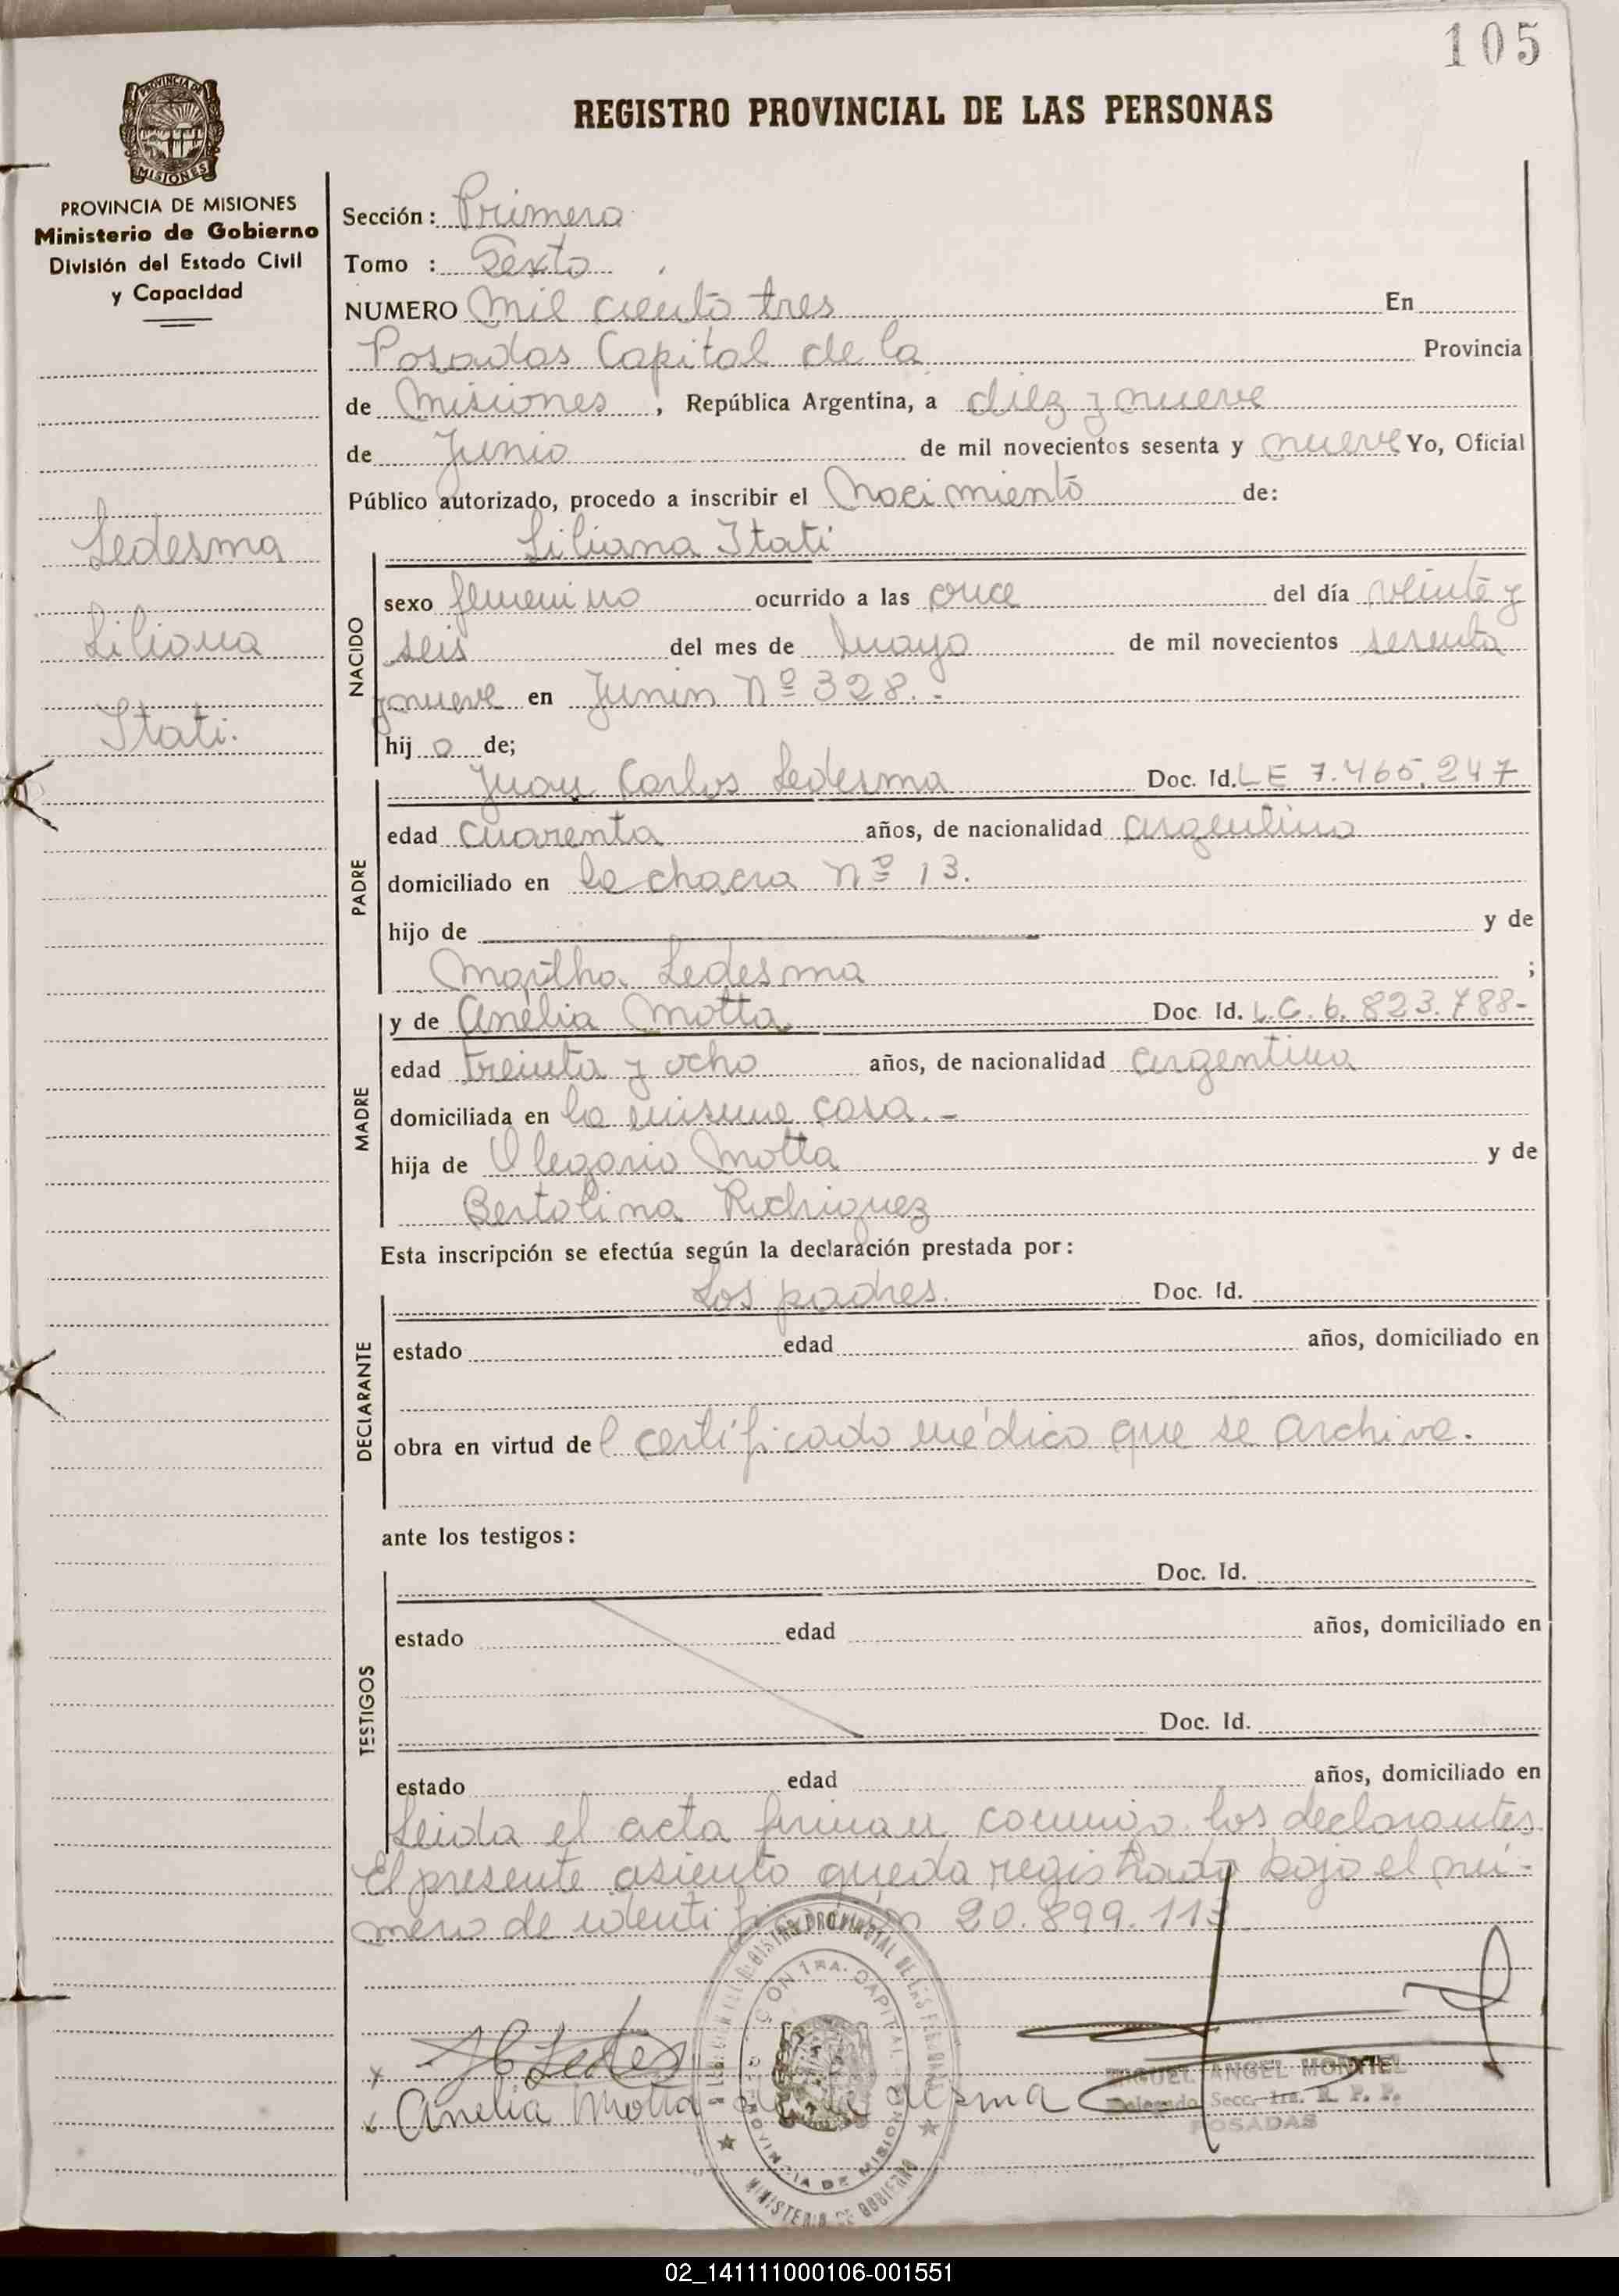 105
REGISTRO PROVINCIAL DE LAS PERSONAS
MISIONES
PROVINCIA DE MISIONES
Ministerio de Gobierno
División del Estado Civil
y Capacidad
Ledesma
Liliana
Itati.
Sección: Primera
Tomo : Sexto
NUMERO mil ciento tres En
Posadas Capital de la Provincia
de Misiones, República Argentina, a diez y nueve
de Junio de mil novecientos sesenta y nueve Yo, Oficial
Público autorizado, procedo a inscribir el Nacimiento de:
NACIDO
Liliana Itati
sexo femenino ocurrido a las once del día veinte y
seis del mes de mayo de mil novecientos sesenta
y nueve en Junin Nº 328.-
hij a de;
PADRE
Juan Carlos Ledesma Doc. Id. LE 7.465.247
edad cuarenta años, de nacionalidad argentino
domiciliado en la chacra nº 13.
hijo de y de
Ledesma ;
MADRE
y de Anélia Motta Doc. Id. L.C. 6.823.788-
edad treinta y ocho años, de nacionalidad argentina
domiciliada en la misma casa.-
hija de Olegario Motta y de
Bertolina Rodriguez
Esta inscripción se efectúa según la declaración prestada por:
DECLARANTE
Los padres. Doc. Id.
estado edad años, domiciliado en
obra en virtud del certificado médico que se archiva.
ante los testigos:
TESTIGOS
Doc. Id.
estado edad años, domiciliado en
Doc. Id.
estado edad años, domiciliado en
Leida el acta firman conmigo los declarantes
El presente asiento queda registrado bajo el nú-
mero de identificación 20.899.113
JC Ledes
Anelia Motta de Ledesma
MIGUEL ANGEL MONTIEL
Delegado Secc. 1ra. R. P. P.
POSADAS
PROVINCIA DE MISIONES
MINISTERIO DE GOBIERNO
02_141111000106-001551